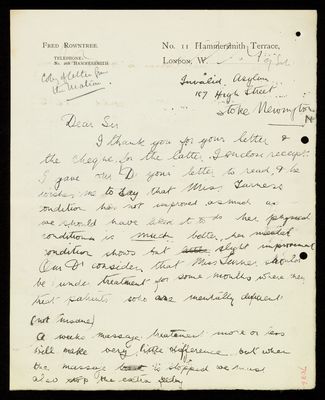 FRED ROWNTREE.
TELEPHONE:
No. 208 HAMMERSMITH
No. 11 Hammersmith Terrace,
LONDON, W.
Copy of letter from
the Matron
Invalid Asylum
187 High Street
Stoke Newington
N
Dear Sir
I thank you for your letter &
the cheque, for the latter I enclose receipt.
I gave our Dr your letter to read, & he
wishes me to say that Miss Turner's
condition has not improved as much as
we should have liked it to do her physical
condition is much better, her mental
condition shows but slight improvement
Our Dr considers that Miss Turner should
be under treatment for some months where they
treat patients who are mentally deficient
(not insane)
A weeks massage treatment more or less
will make very little difference but when
the massage is stopped we must
also stop the extra